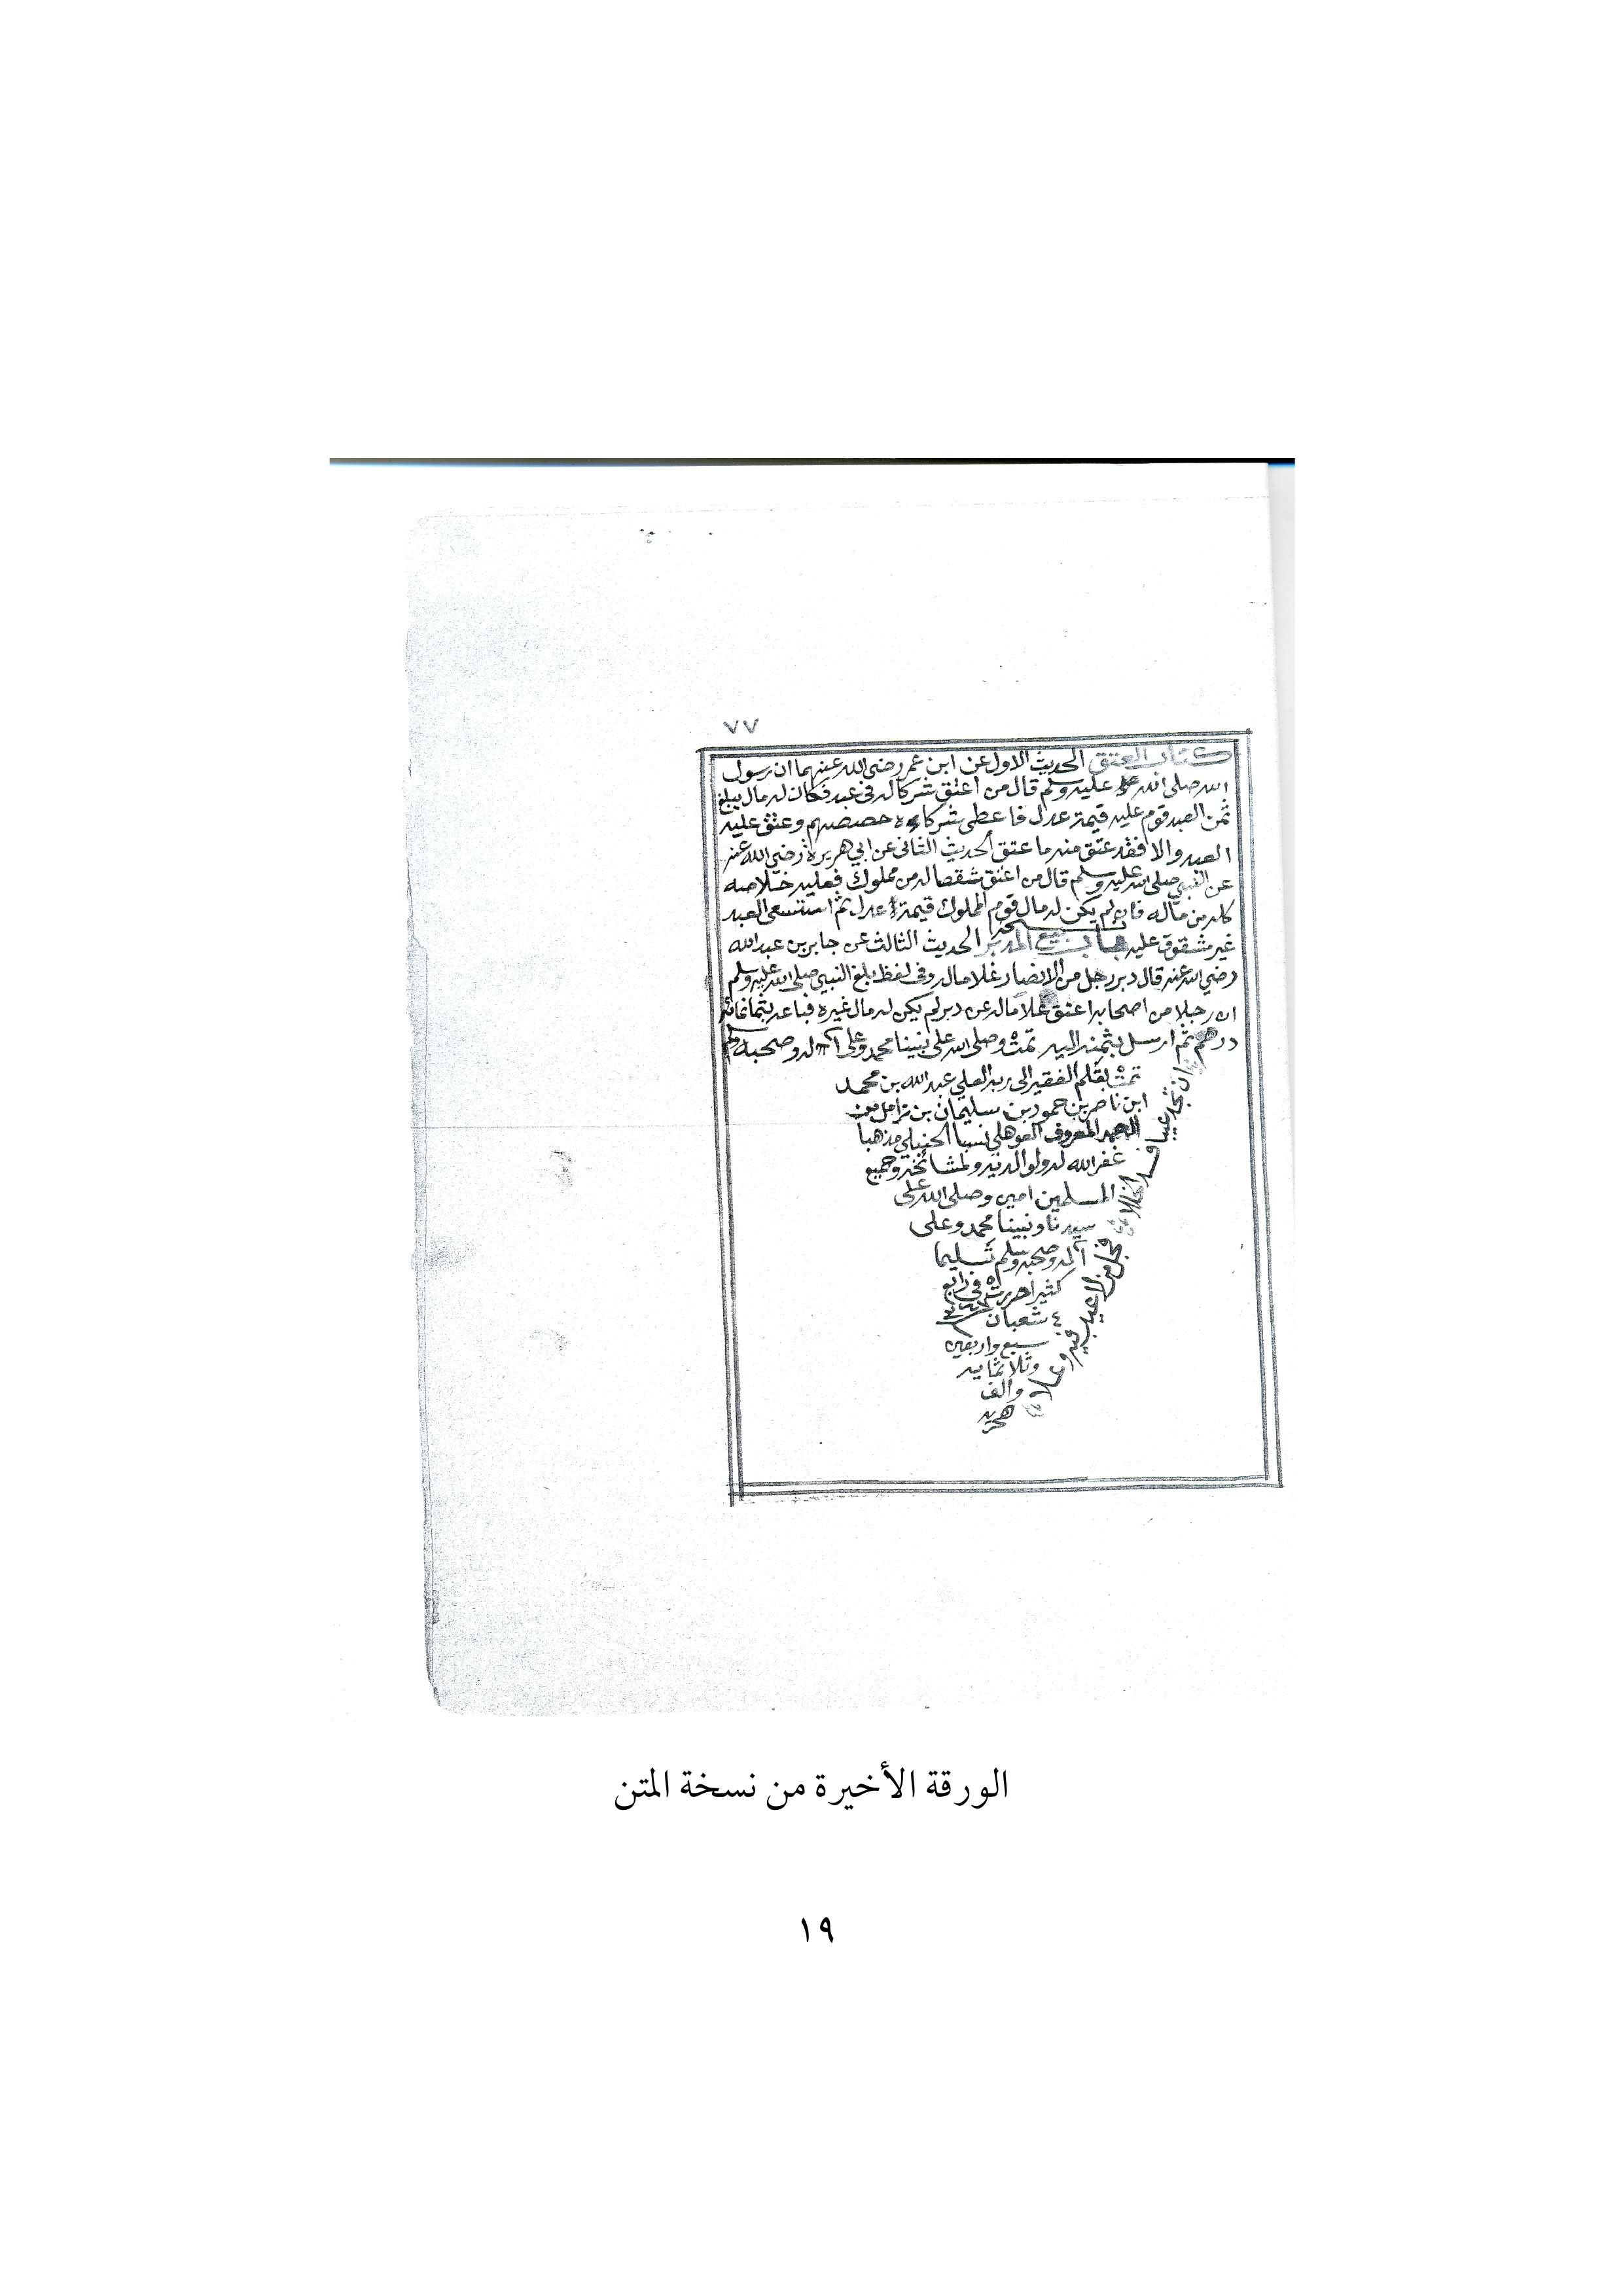 ٧٧
كتاب العتق الحديث الاول عن ابن عمر رضي الله عنهما ان رسول
الله صلى الله عليه وسلم قال من اعتق شركا له في عبد فكان له مال يبلغ
ثمن العبد قوم عليه قيمة عدل فاعطى شركاءه حصصهم وعتق عليه
العبد والا فقد عتق منه ما عتق الحديث الثاني عن ابي هريرة رضي الله عنه
عن النبي صلى الله عليه وسلم قال من اعتق شقصا له من مملوك فعليه خلاصه
كله من ماله فان لم يكن له مال قوم المملوك قيمة عدل ثم استسعى العبد
غير مشقوق عليه باب بيع المدبر الحديث الثالث عن جابر بن عبد الله
رضي الله عنه قال دبر رجل من الانصار غلاما له وفي لفظ بلغ النبي صلى الله عليه وسلم
ان رجلا من اصحابه اعتق غلاما له عن دبر لم يكن له مال غيره فباعه بثمانمائة
درهم ثم ارسل بثمنه اليه تمت وصلى الله على نبينا محمد وعلى آله وصحبه وسلم
تمت بقلم الفقير الى ربه العلي عبد الله بن محمد
ابن ناصر بن حمود بن سليمان بن زامل من
المعروف العوهلي نسبا الحنبلي مذهبا
غفر الله له ولوالديه ولمشائخه وجميع
المسلمين امين وصلى الله على
سيدنا ونبينا محمد وعلى
آله وصحبه وسلم تسليما
كثيرا حررت في رابع
٤ شعبان
سبع واربعين
وثلاثمايه
والف
هجريه
ان تجد عيبا فسد الخللا
فجل من لا عيب فيه وعلا
الورقة الأخيرة من نسخة المتن
١٩